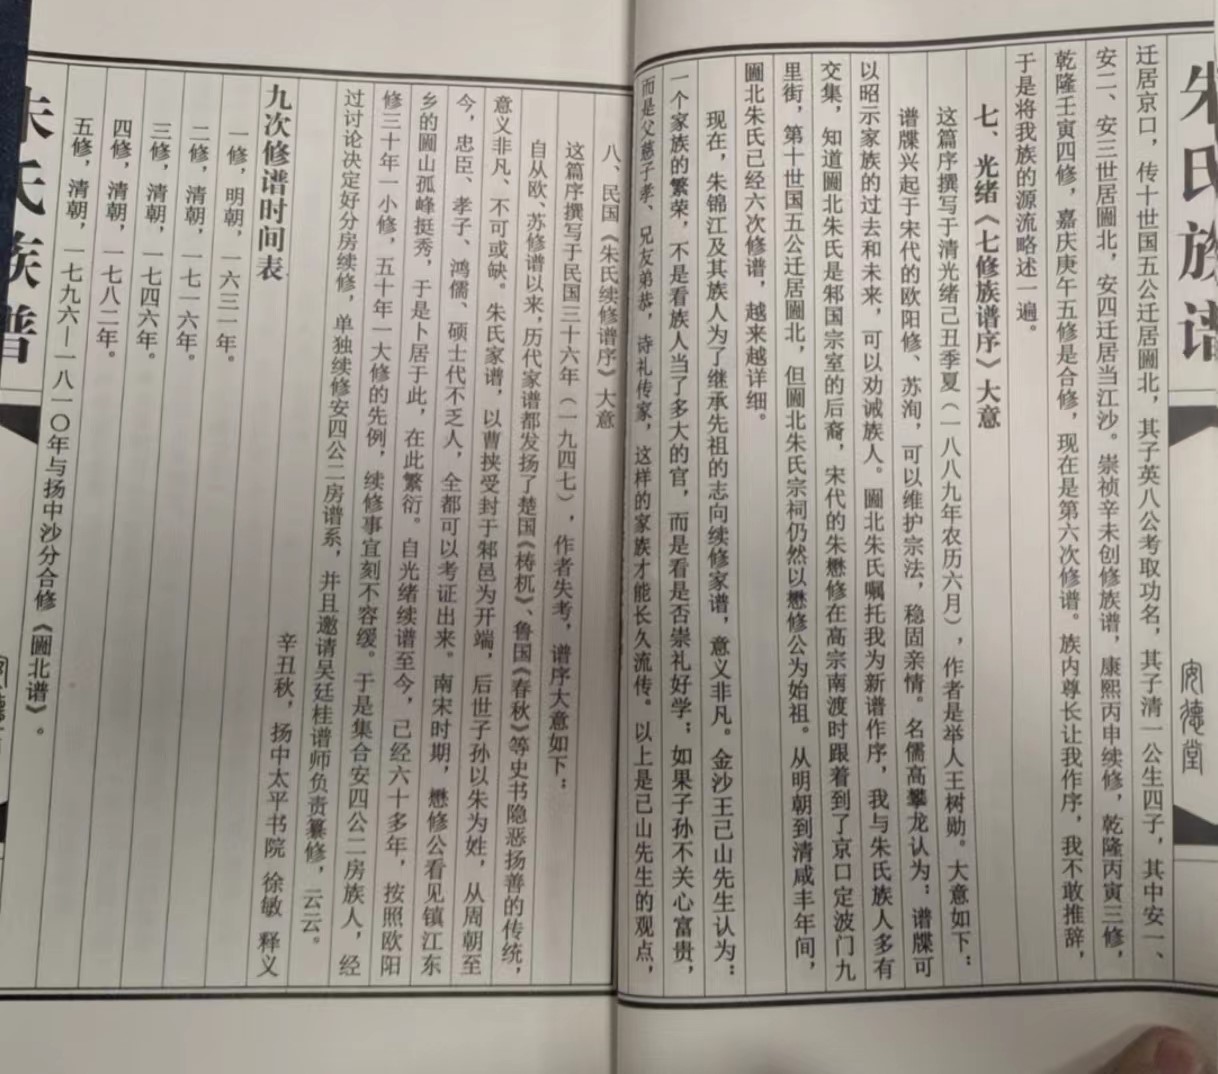 朱氏族谱
安德堂
迁居京口，传十世国五公迁居圌北，其子英八公考取功名，其子清一公生四子，其中安一、
安二、安三世居圌北，安四迁居当江沙。崇祯辛未创修族谱，康熙丙申续修，乾隆丙寅三修，
乾隆壬寅四修，嘉庆庚午五修是合修，现在是第六次修谱。族内尊长让我作序，我不敢推辞，
于是将我族的源流略述一遍。
七、光绪《七修族谱序》大意
这篇序撰写于清光绪己丑季夏（一八八九年农历六月），作者是举人王树勋。大意如下：
谱牒兴起于宋代的欧阳修、苏洵，可以维护宗法，稳固亲情。名儒高攀龙认为：谱牒可
以昭示家族的过去和未来，可以劝诫族人。圌北朱氏嘱托我为新谱作序，我与朱氏族人多有
交集，知道圌北朱氏是邾国宗室的后裔，宋代的朱懋修在高宗南渡时跟着到了京口定波门九
里街，第十世国五公迁居圌北，但圌北朱氏宗祠仍然以懋修公为始祖。从明朝到清咸丰年间，
圌北朱氏已经六次修谱，越来越详细。
现在，朱锦江及其族人为了继承先祖的志向续修家谱，意义非凡。金沙王己山先生认为：
一个家族的繁荣，不是看族人当了多大的官，而是看是否崇礼好学；如果子孙不关心富贵，
而是父慈子孝、兄友弟恭，诗礼传家，这样的家族才能长久流传。以上是己山先生的观点，
八、民国《朱氏续修谱序》大意
这篇序撰写于民国三十六年（一九四七），作者失考，谱序大意如下：
自从欧、苏修谱以来，历代家谱都发扬了楚国《梼杌》、鲁国《春秋》等史书隐恶扬善的传统，
意义非凡、不可或缺。朱氏家谱，以曹挟受封于邾邑为开端，后世子孙以朱为姓，从周朝至
今，忠臣、孝子、鸿儒、硕士代不乏人，全都可以考证出来。南宋时期，懋修公看见镇江东
乡的圌山孤峰挺秀，于是卜居于此，在此繁衍。自光绪续谱至今，己经六十多年，按照欧阳
修三十年一小修，五十年一大修的先例，续修事宜刻不容缓。于是集合安四公二房族人，经
过讨论决定好分房续修，单独续修安四公二房谱系，并且邀请吴廷桂谱师负责纂修，云云。
辛丑秋，扬中太平书院 徐敏 释义
九次修谱时间表
一修，明朝，一六三一年。
二修，清朝，一七一六年。
三修，清朝，一七四六年。
四修，清朝，一七八二年。
五修，清朝，一七九六—一八一〇年与扬中沙分合修《圌北谱》。
朱氏族谱